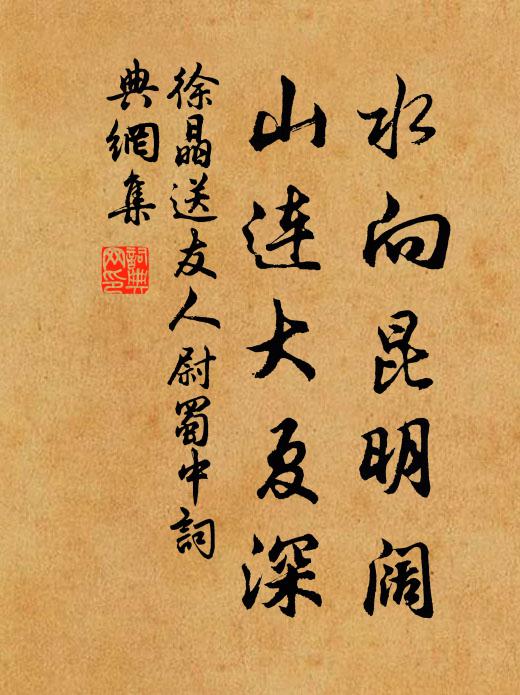 水向昆明阔
山连大夏深
徐晶送友人尉蜀中词
典網集
詞典網印